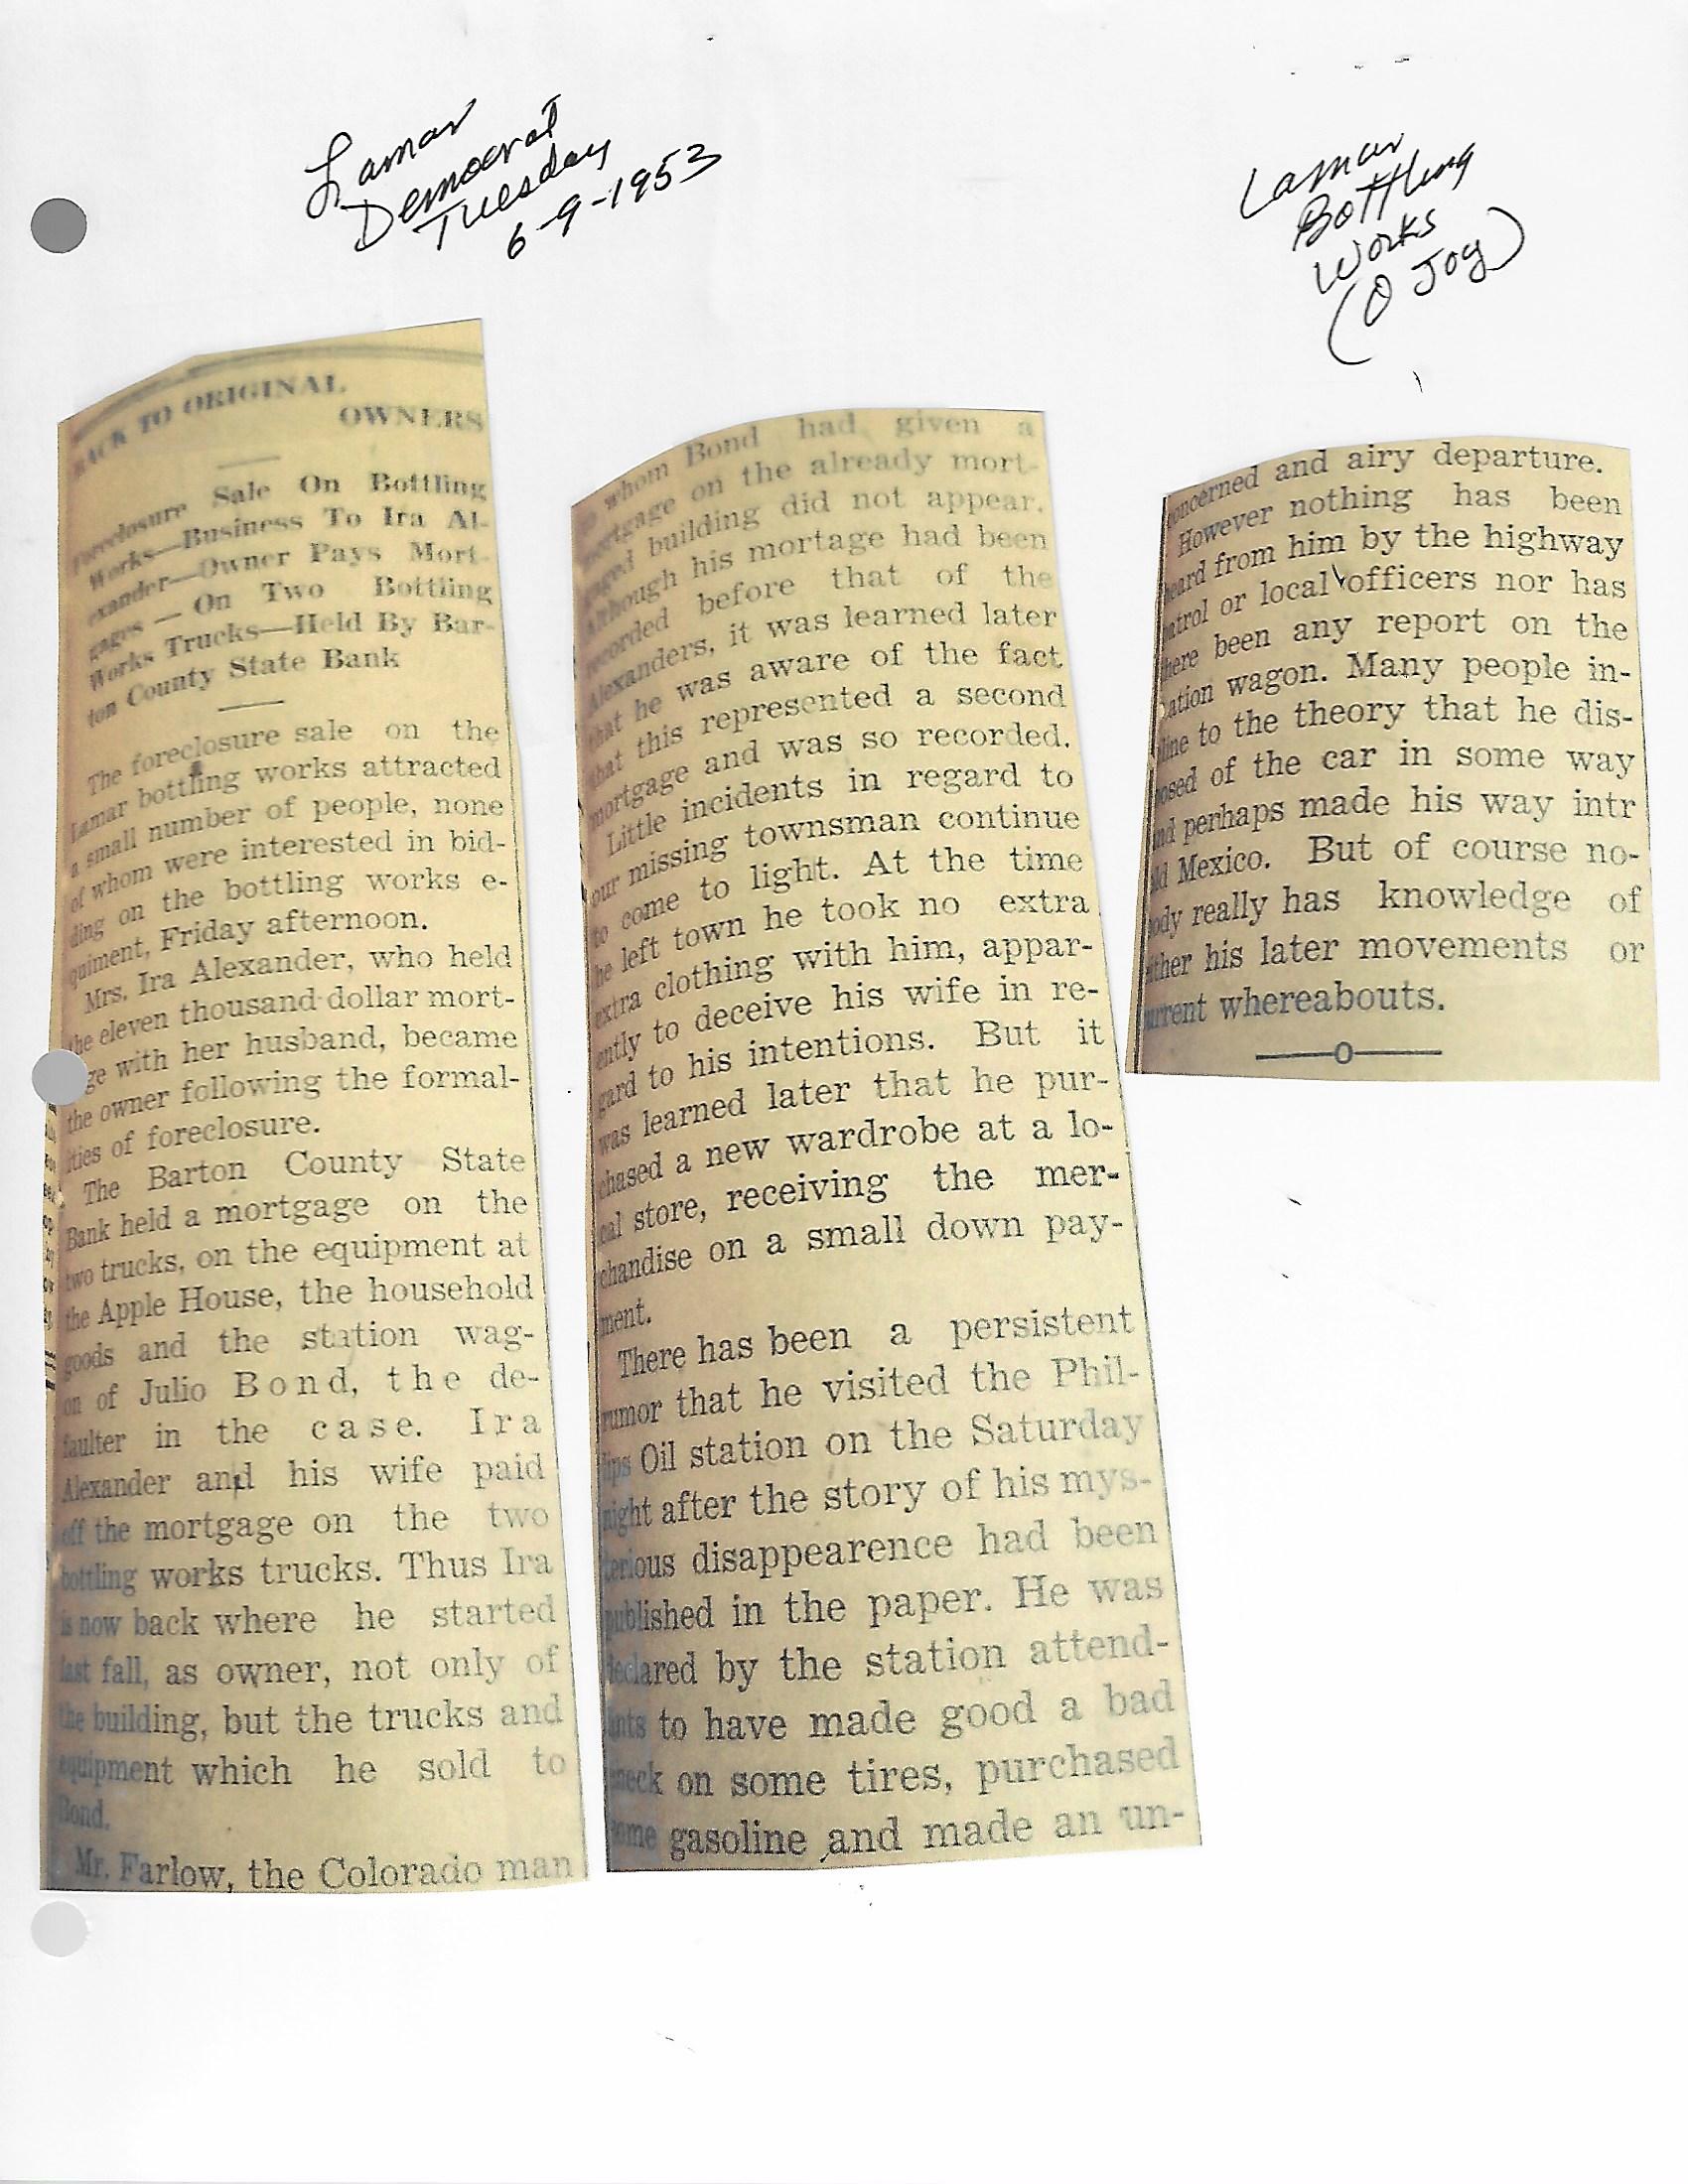 Lamar
Democrat
Tuesday
6-9-1953
Lamar
Bottling
Works
(O Joy)
BACK TO ORIGINAL
OWNERS
Foreclosure Sale On Bottling
Works—Business To Ira Al-
exander—Owner Pays Mort-
gages — On Two Bottling
Works Trucks—Held By Bar-
ton County State Bank
The foreclosure sale on the
Lamar bottling works attracted
a small number of people, none
of whom were interested in bid-
ding on the bottling works e-
quiment, Friday afternoon.
Mrs. Ira Alexander, who held
the eleven thousand dollar mort-
ge with her husband, became
the owner following the formal-
ities of foreclosure.
The Barton County State
Bank held a mortgage on the
two trucks, on the equipment at
the Apple House, the household
goods and the station wag-
on of Julio Bond, the de-
faulter in the case. Ira
Alexander and his wife paid
off the mortgage on the two
bottling works trucks. Thus Ira
is now back where he started
last fall, as owner, not only of
the building, but the trucks and
equipment which he sold to
Bond.
Mr. Farlow, the Colorado man
to whom Bond had given a
mortgage on the already mort-
gaged building did not appear.
Although his mortage had been
recorded before that of the
Alexanders, it was learned later
that he was aware of the fact
that this represented a second
mortgage and was so recorded.
Little incidents in regard to
our missing townsman continue
to come to light. At the time
he left town he took no extra
extra clothing with him, appar-
ently to deceive his wife in re-
gard to his intentions. But it
was learned later that he pur-
chased a new wardrobe at a lo-
cal store, receiving the mer-
chandise on a small down pay-
ment.
There has been a persistent
rumor that he visited the Phil-
lips Oil station on the Saturday
night after the story of his mys-
terious disappearence had been
published in the paper. He was
declared by the station attend-
ants to have made good a bad
check on some tires, purchased
some gasoline and made an un-
concerned and airy departure.
However nothing has been
heard from him by the highway
patrol or local officers nor has
there been any report on the
station wagon. Many people in-
cline to the theory that he dis-
posed of the car in some way
and perhaps made his way intr
old Mexico. But of course no-
body really has knowledge of
either his later movements or
current whereabouts.